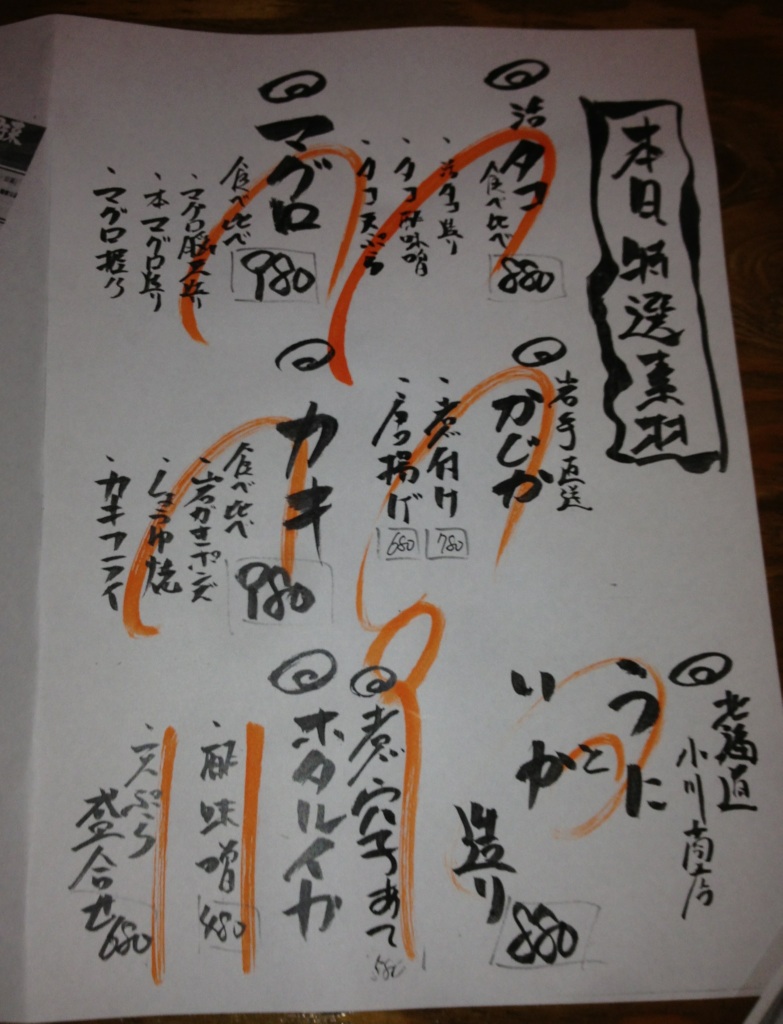 本日特選素材
活タコ
食べ比べ
880
・活タコ造り
・タコ酢味噌
・タコ天ぷら
マグロ
食べ比べ
980
・マグロ脳天造り
・本マグロ造り
・マグロ握り
岩手直送
かじか
・煮付け
780
・唐揚げ
680
カキ
食べ比べ
980
・岩ガキポンズ
・しょうゆ焼
・カキフライ
北海道
小川商店
うに
と
いか
造り
880
煮穴子あて
580
ホタルイカ
酢味噌
480
・天ぷら
盛合せ
680